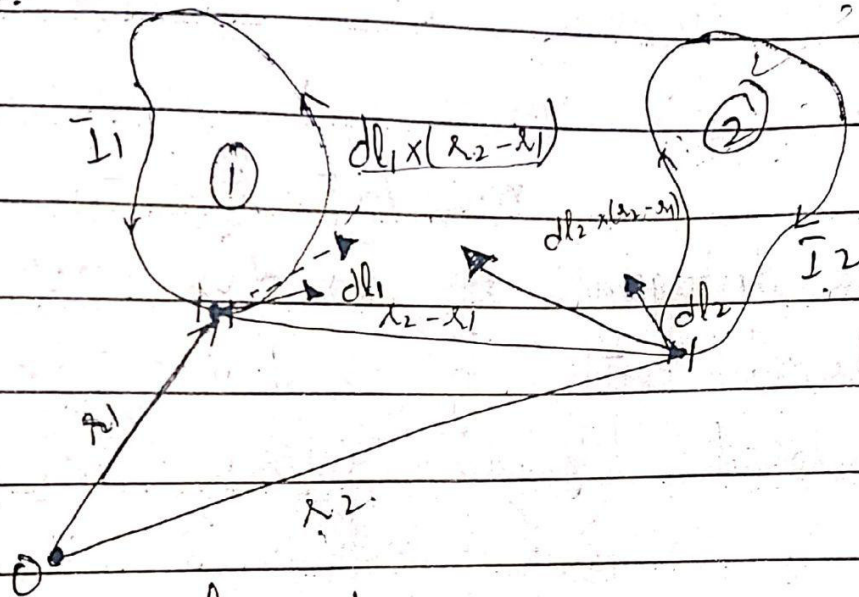 I1
①
dl1 ×(r2-r1)
②
dl2 ×(r2-r1)
I2
dl1
r2-r1
dl2
r1
r2
O